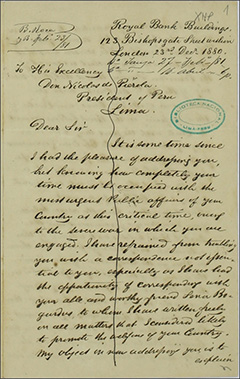 1
Royal Bank Buildings.
123 Bishopsgate St within
London 23rd Decr. 1880.
To His Excellency
Don Nicolas de Pierola
President of Peru
Lima.
Dear Sir
It is some time since
I had the pleasure of addressing you,
but knowing how completely your
time must be occupied with the
most urgent Public affairs of your
Country at this critical time, owing
to the severe war in which you are
engaged. I have refrained from troubling
you, with a correspondence not essen-
tial to you, especially as I have had
the opportunity of corresponding with
your able and worthy friend Sena Bo-
gardus to whom I have written freely
on all matters that I considered likely
to promote the welfare of your Country.
My object in now addressing you is to
explain